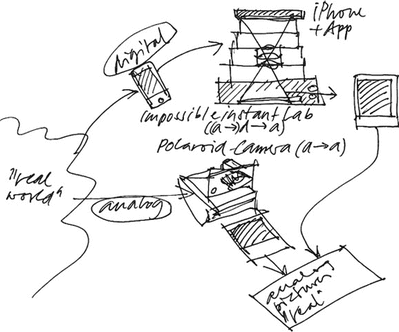 iPhone
+ App
digital
impossible instant Lab
(a→d→a)
Polaroid-Camera (a→a)
"real
world"
analog
analog
pictures
"real"